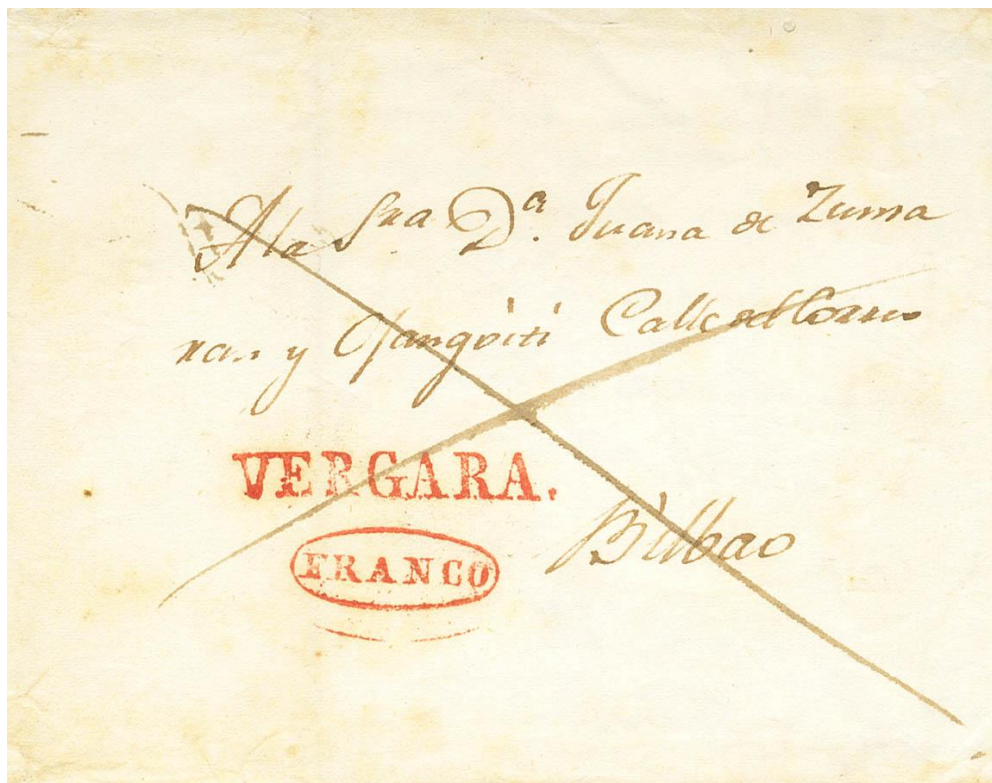 A la Sra Dª. Juana de Zuma
ran y Ojangoiti Calle del Correo
VERGARA.
FRANCO
Bilbao